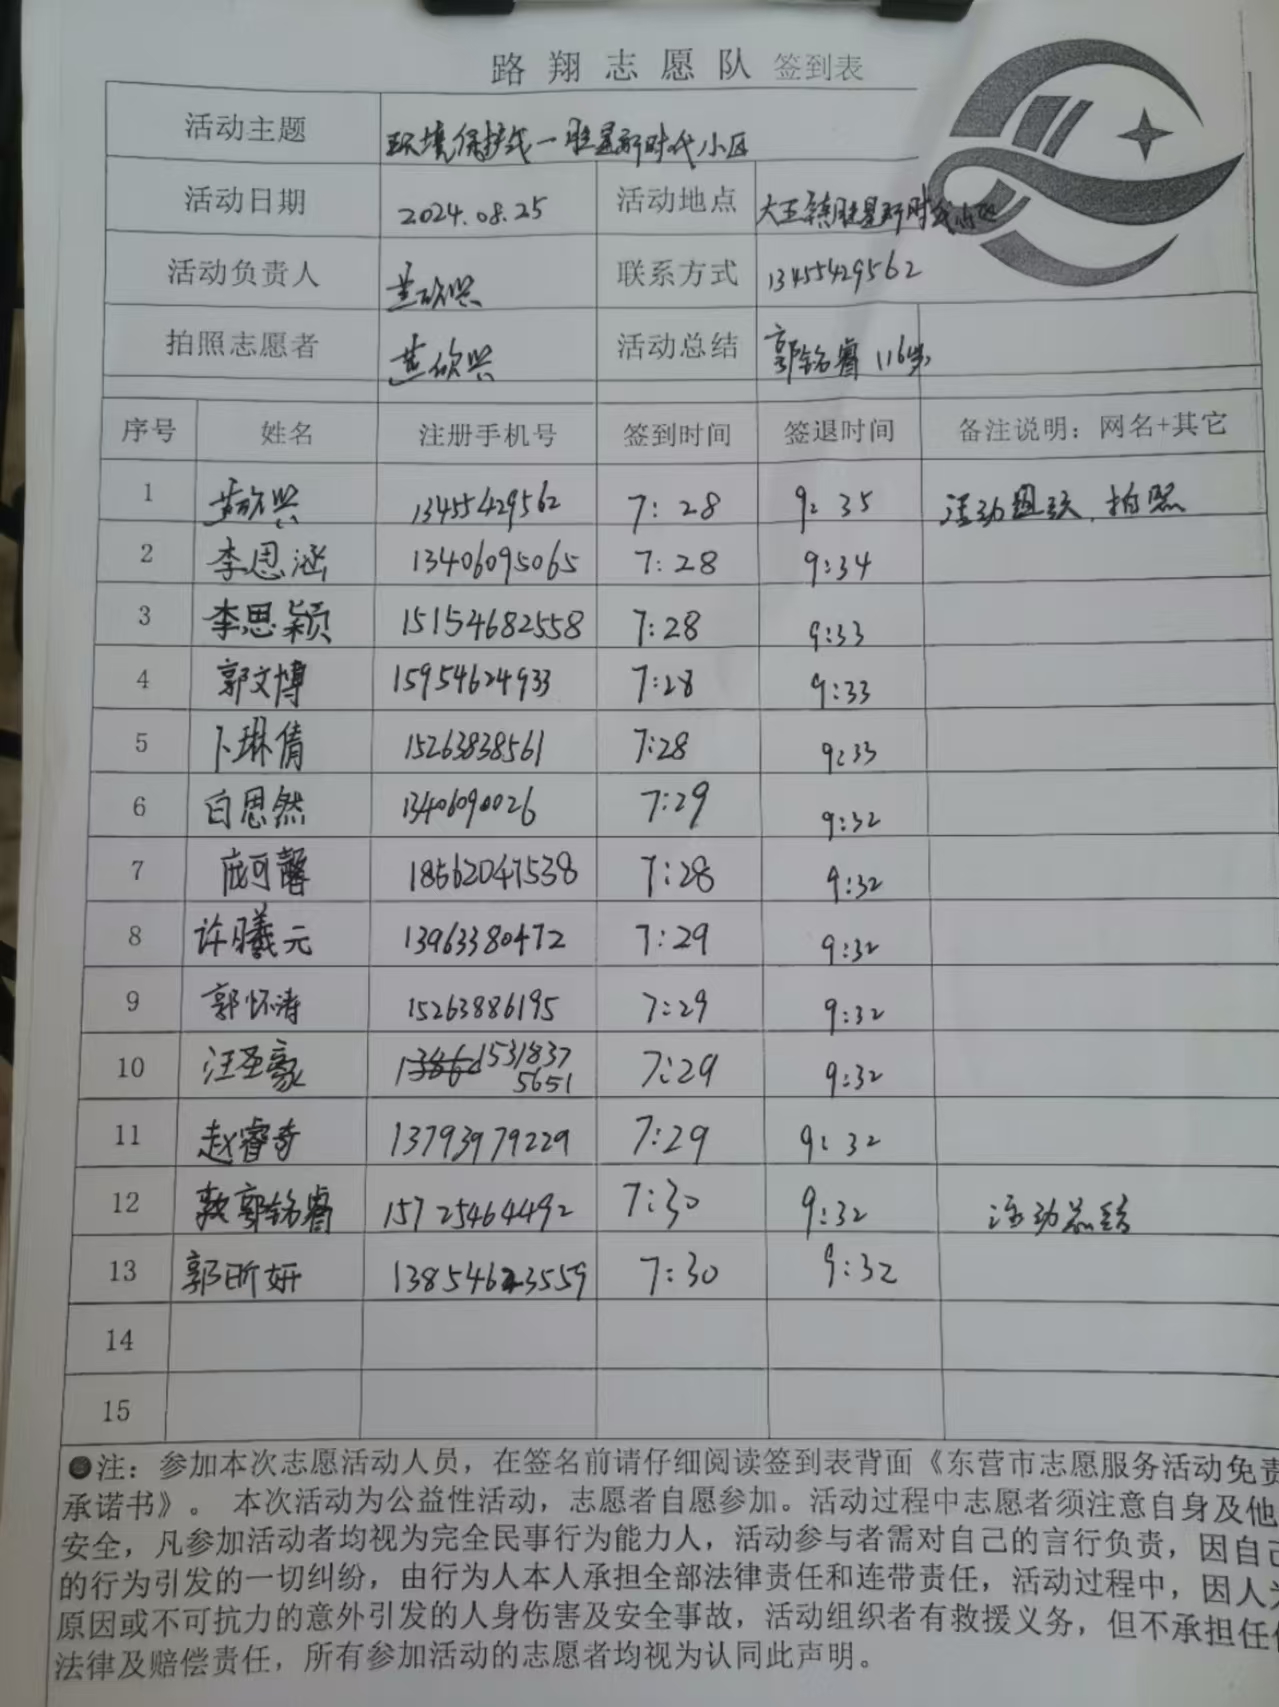 路翔志愿队 签到表
活动主题 环境保护战一胜星新时代小区
活动日期 2024.08.25 活动地点 大王镇胜星新时代小区
活动负责人 联系方式 13455429562
拍照志愿者 活动总结 郭铭睿（16岁）
序号 姓名 注册手机号 签到时间 签退时间 备注说明：网名+其它
1 13455429562 7:28 9:35 活动组织、拍照
2 李思涵 13406095065 7:28 9:34
3 李思颖 15154682558 7:28 9:33
4 郭文博 15954624933 7:28 9:33
5 卜琳倩 15263838561 7:28 9:33
6 白恩然 13406090026 7:29 9:32
7 庞可馨 18562047538 7:28 9:32
8 许曦元 13963380472 7:29 9:32
9 郭怀涛 15263886195 7:29 9:32
10 汪圣豪 1531837 7:29 9:32
5651
11 赵睿奇 13793979229 7:29 9:32
12 郭铭睿 15725464492 7:30 9:32 活动总结
13 郭昕妍 13854623559 7:30 9:32
14
15
●注：参加本次志愿活动人员，在签名前请仔细阅读签到表背面《东营市志愿服务活动免责
承诺书》。 本次活动为公益性活动，志愿者自愿参加。活动过程中志愿者须注意自身及他
安全，凡参加活动者均视为完全民事行为能力人，活动参与者需对自己的言行负责，因自己
的行为引发的一切纠纷，由行为人本人承担全部法律责任和连带责任，活动过程中，因人为
原因或不可抗力的意外引发的人身伤害及安全事故，活动组织者有救援义务，但不承担任何
法律及赔偿责任，所有参加活动的志愿者均视为认同此声明。